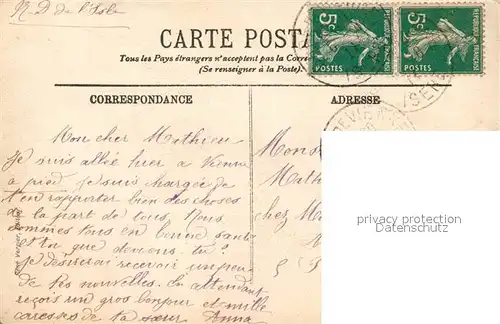 N.D. de l'Isle
CARTE POSTA
Tous les Pays étrangers n'acceptent pas la Corre
(Se renseigner à la Poste).
5c
POSTES
5c
POSTES
CORRESPONDANCE
ADRESSE
Mon cher Mathieu
Je suis allée hier à Vienne
à pied je suis chargée de
t'en rapporter bien des choses
de la part de tous. Nous
sommes tous en bonne santé
et tu que deviens tu?
Je désirerai recevoir un peu
de tes nouvelles. En attendant
reçois un gros bonjour et mille
caresses de ta sœur Anna
Mons
Math
chez M
privacy protection
Datenschutz